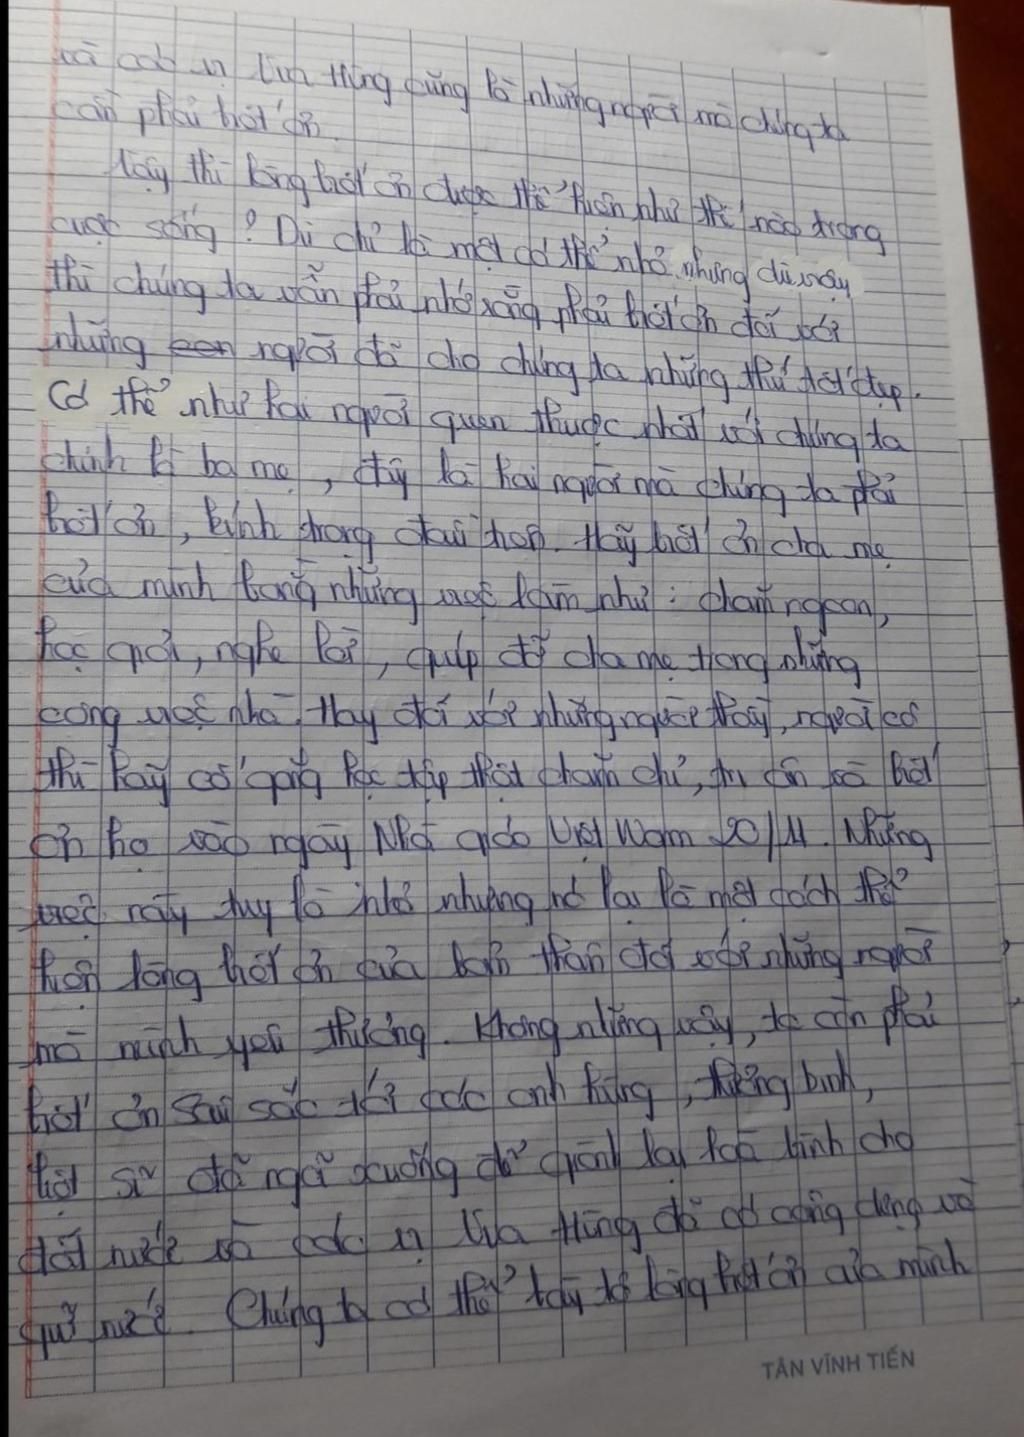 và các vị Vua Hùng cũng là những người mà chúng ta
cần phải biết ơn.
Vậy thì lòng biết ơn được thể hiện như thế nào trong
cuộc sống? Dù chỉ là một cá thể nhỏ nhưng dù vậy
thì chúng ta vẫn phải nhớ rằng phải biết ơn đối với
những người đã cho chúng ta những thứ tốt đẹp.
Có thể như hai người quen thuộc nhất với chúng ta
chính là ba mẹ, đây là hai người mà chúng ta phải
biết ơn, kính trọng đầu tiên. Hãy biết ơn cha mẹ
của mình bằng những việc làm như: chăm ngoan,
học giỏi, nghe lời, giúp đỡ cha mẹ trong những
công việc nhà. Hay đối với những người thầy, người cô
thì hãy cố gắng học tập thật chăm chỉ, tri ân và biết
ơn họ vào ngày Nhà giáo Việt Nam 20/11. Những
việc này tuy là nhỏ nhưng nó lại là một cách thể
hiện lòng biết ơn của bản thân đối với những người
mà mình yêu thương. Không những vậy, ta cần phải
biết ơn sâu sắc tới các anh hùng, thương binh,
liệt sĩ đã ngã xuống để giành lại hoà bình cho
đất nước và các vị Vua Hùng đã có công dựng và
giữ nước. Chúng ta có thể bày tỏ lòng biết ơn của mình
TÂN VĨNH TIẾN